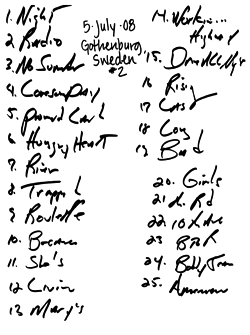 1. Night
2. Radio
3. No Surrender
4. Lonesome Day
5. Promised Land
6. Hungry Heart
7. River
8. Trapped
9. Roulette
10. Because
11. She's
12. Livin
13. Mary's
5. July -08
Gothenburg,
Sweden
#2
14. Workin...
Highway
15.
16 Rising
17 Last
18 Long
19 Bad
20. Girls
21.
22. 10th Ave
23 BTR
24. Bobby Jean
25. American